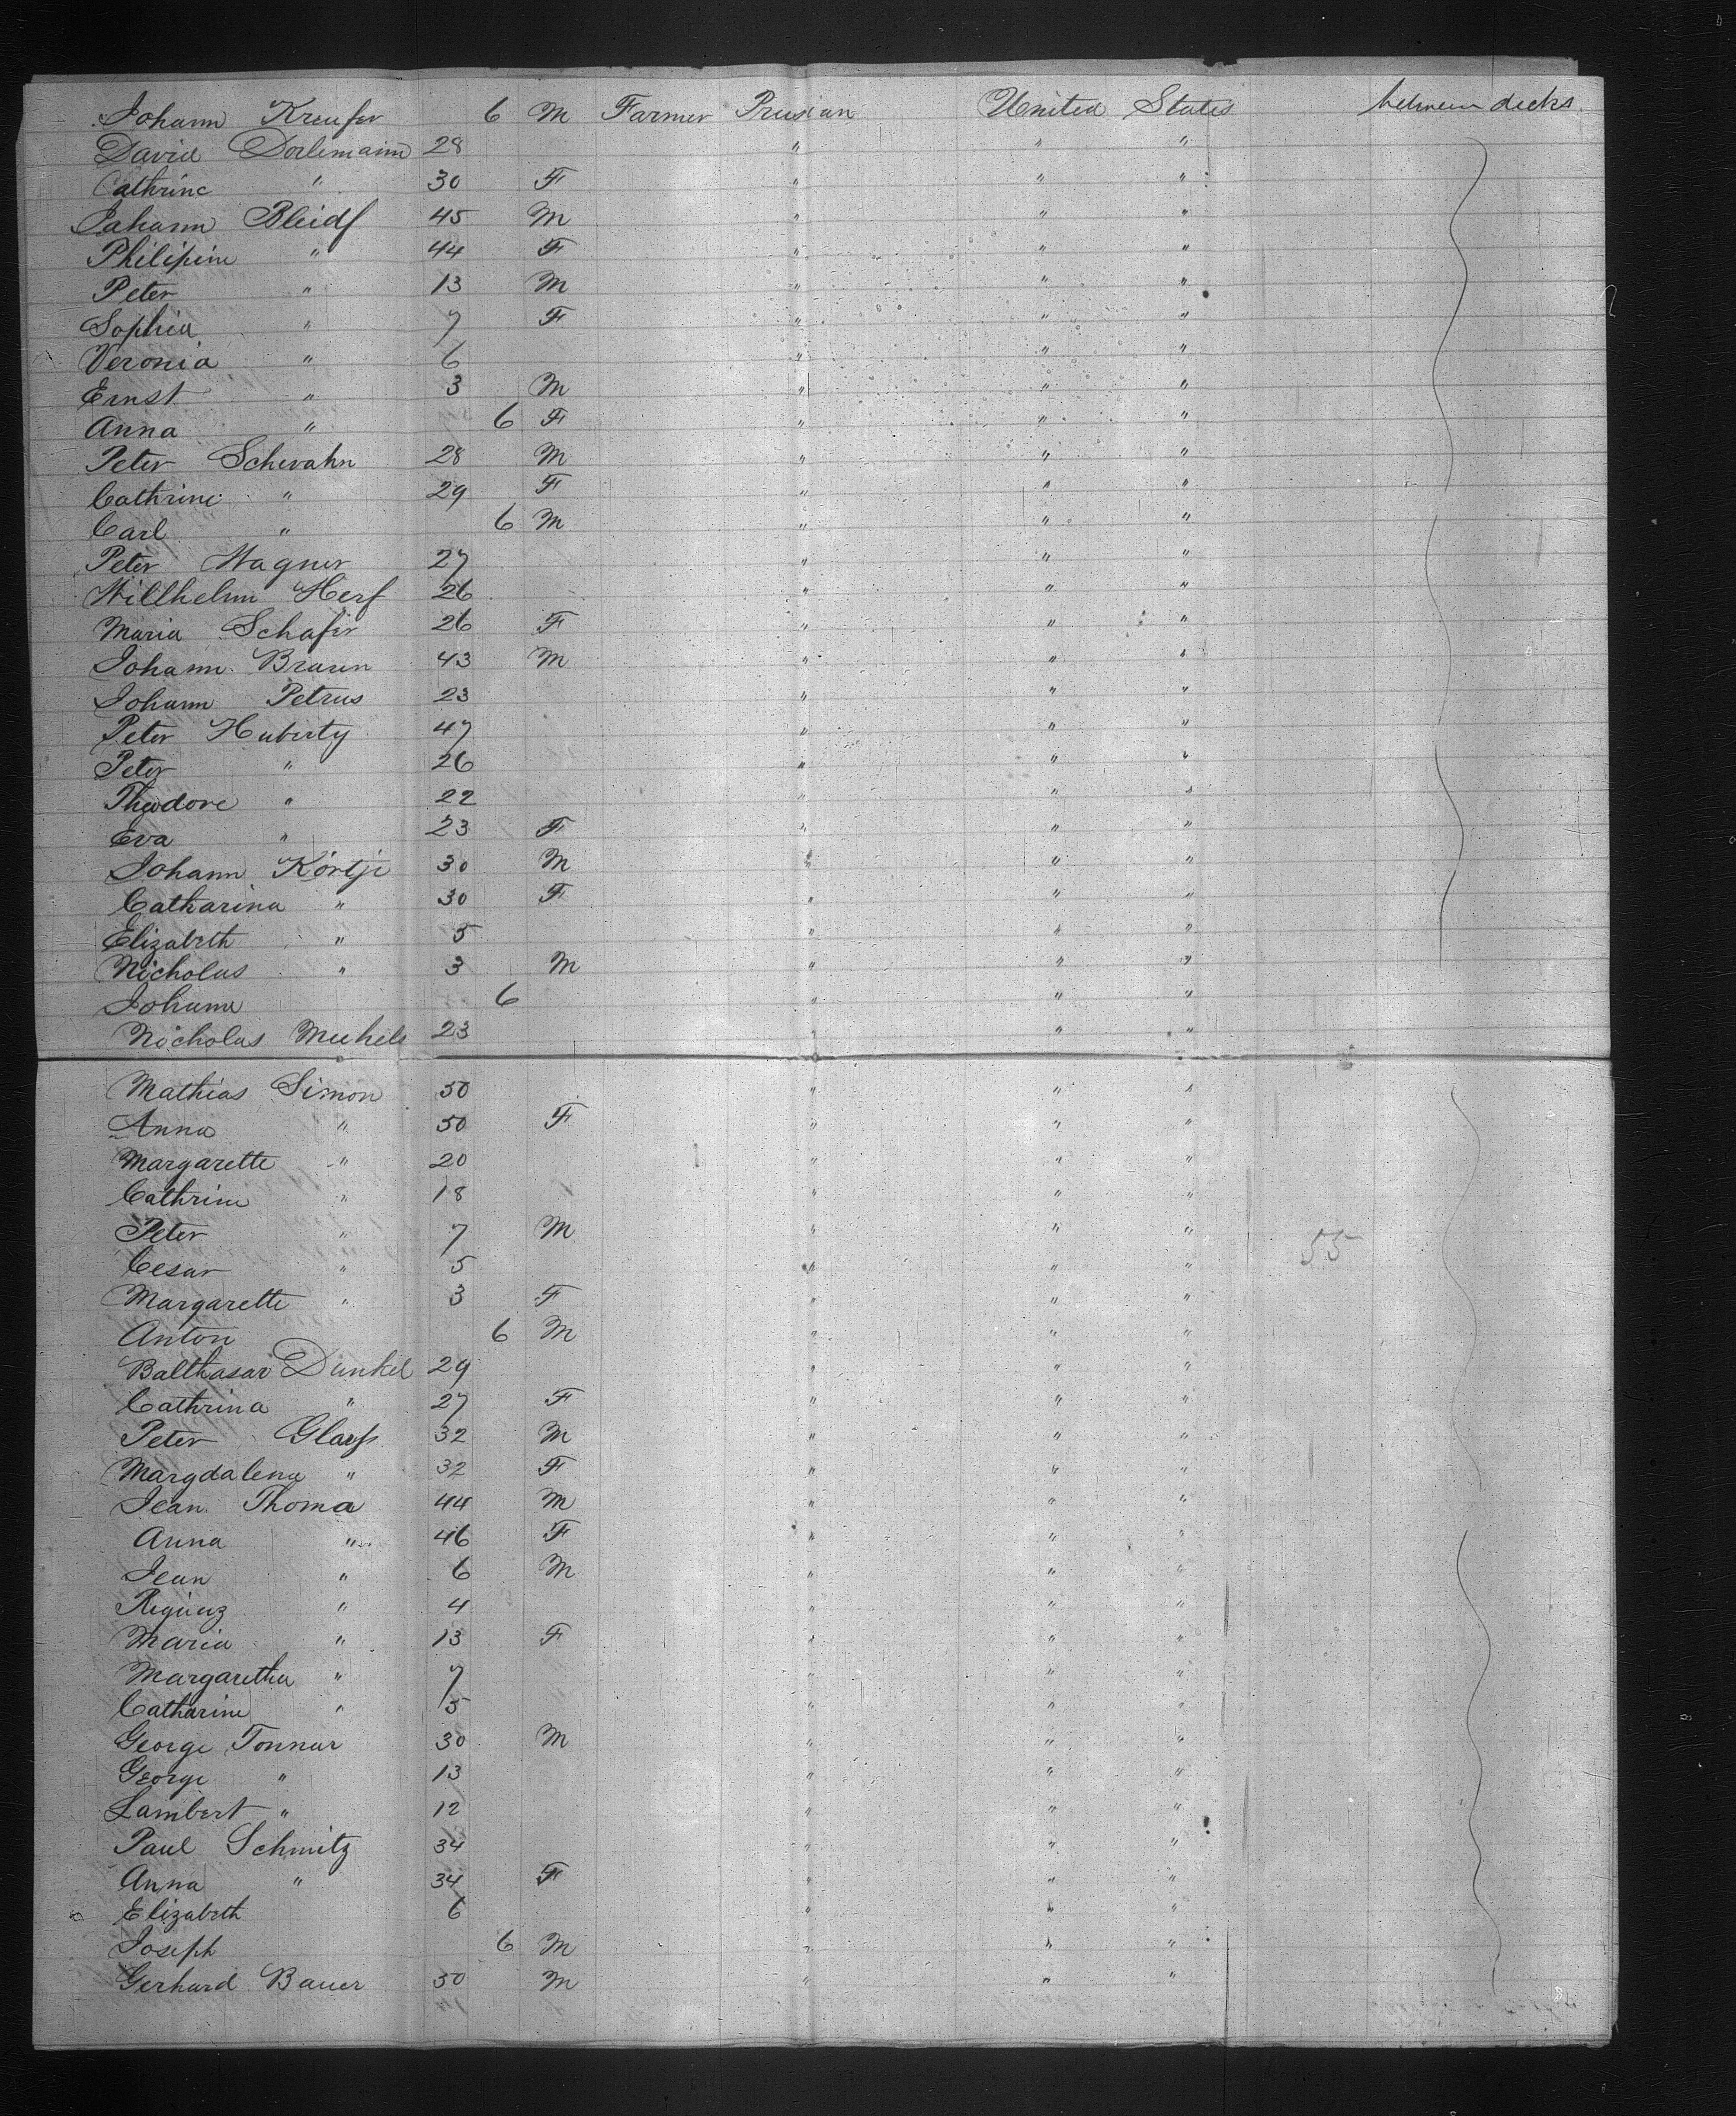 Johann Kreufer 6 M Farmer Prusian United States between decks.
David Dorlemann 28 " " "
Cathrine " 30 F " " "
Johann Bleidß 45 M " " "
Philipine " 44 F " " "
Peter " 13 M " " "
Sophia " 7 F " " "
Veronia " 6 " " "
Ernst " 3 M " " "
Anna " 6 F " " "
Peter Schwahn 28 M " " "
Cathrine " 29 F " " "
Carl " 6 M " " "
Peter Wagner 27 " " "
Willhelm Herf 26 " " "
Maria Schafer 26 F " " "
Johann Braun 43 M " " "
Johann Petrus 23 " " "
Peter Huberty 47 " " "
Peter " 26 " " "
Theodore " 22 " " "
Eva " 23 F " " "
Johann Körtje 30 M " " "
Catharina " 30 F " " "
Elizabeth " 5 " " "
Nicholas " 3 M " " "
Johann 6 " " "
Nicholas Michels 23 " " "
Mathias Simon 50 " " "
Anna " 50 F " " "
Margarette " 20 " " "
Cathrine " 18 " " "
Peter " 7 M " " " 55
Cesar " 5 " " "
Margarette " 3 F " " "
Anton 6 M " " "
Balthasar Dunkel 29 " " "
Cathrina " 27 F " " "
Peter Glaß 32 M " " "
Margdalena " 32 F " " "
Jean Thoma 44 M " " "
Anna " 46 F " " "
Jean " 6 M " " "
" 4 " " "
Maria " 13 F " " "
Margaretha " 7 " " "
Catharine " 5 " " "
George Tonnar 30 M " " "
George " 13 " " "
Lambert " 12 " " "
Paul Schmitz 34 " " "
Anna " 34 F " " "
Elizabeth 6 " " "
Joseph 6 M " " "
Gerhard Bauer 50 M " " "